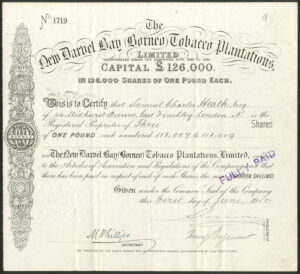 No. 1719
The
New Darvel Bay (Borneo) Tobacco Plantations,
LIMITED
CAPITAL £126,000.
IN 126,000 SHARES OF ONE POUND EACH.
This is to Certify that Samuel Charles Heath, Esq
of Avenue East Finchley, London. N. is the
Registered Proprietor of Three Shares
of ONE POUND each numbered 111,007 to 111,009
in The New Darvel Bay (Borneo) Tobacco Plantations, Limited,
to the Articles of Association and Regulations of the Company and that
there has been paid in respect of each of such Shares the sum of SHILLINGS
FULLY PAID
Given under the Common Seal of the Company
this First day of June
M. Phillips
SECRETARY
DIRECTORS